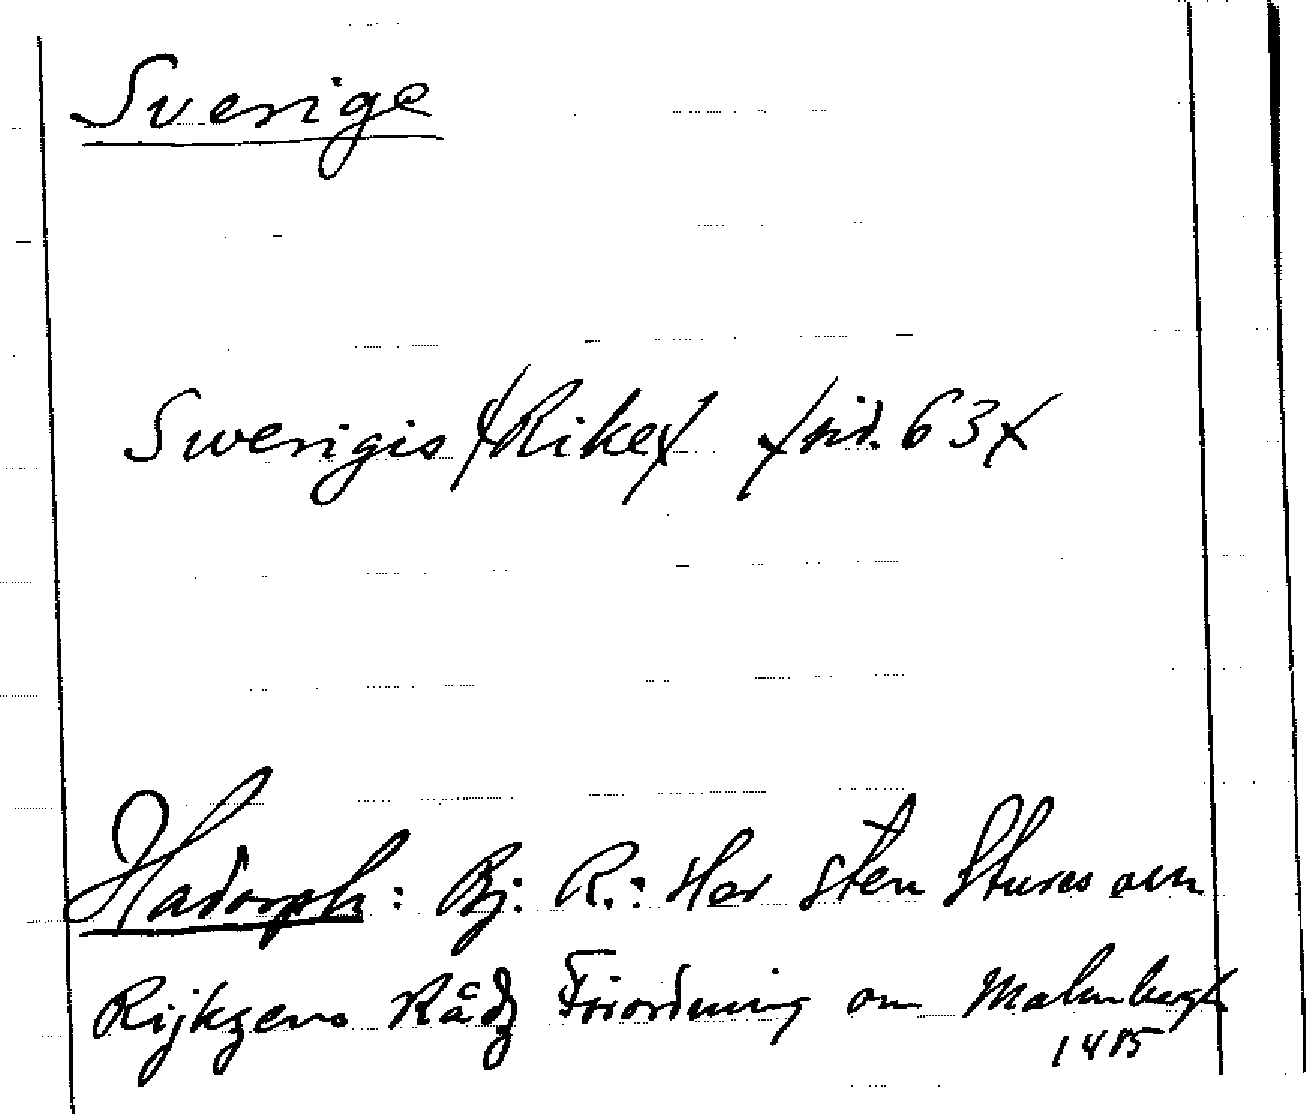 Sverige
Swerigis /Rike/ /sid. 63/
Hadorph: Bj: R.: Her Sten Stures och
Rijkzens Rådz Förordning om Malmbergh
1485